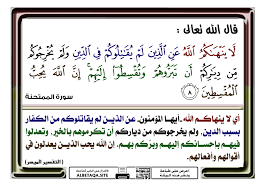 قال الله تعالى :
لَا يَنْهَاكُمُ اللَّهُ عَنِ الَّذِينَ لَمْ يُقَاتِلُوكُمْ فِي الدِّينِ وَلَمْ يُخْرِجُوكُم
مِّن دِيَارِكُمْ أَن تَبَرُّوهُمْ وَتُقْسِطُوا إِلَيْهِمْ إِنَّ اللَّهَ يُحِبُّ
الْمُقْسِطِينَ ٨
سورة الممتحنة
أي لا ينهاكم الله أيها المؤمنون، عن الذين لم يقاتلوكم من الكفار
بسبب الدين، ولم يخرجوكم من دياركم أن تكرموهم بالخير، وتعدلوا
فيهم بإحسانكم إليهم وبركم بهم. إن الله يحب الذين يعدلون في
أقوالهم وأفعالهم.
( التفسير الميسر )
ALBETAQA.SITE